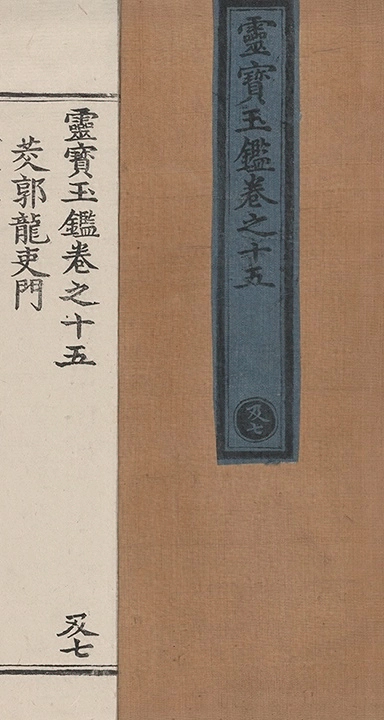 靈寶玉鑑卷之十五
及七
靈寶玉鑑卷之十五
及七
茭郭龍吏門